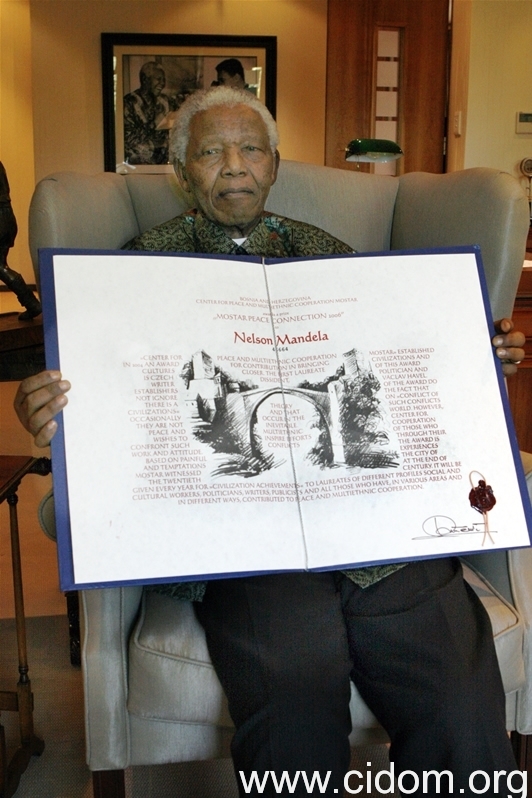 BOSNIA AND HERZEGOVINA
CENTER FOR PEACE AND MULTIETHNIC COOPERATION MOSTAR
„MOSTAR PEACE CONNECTION
Nelson Mandela
46664
«CENTER FOR PEACE AND MULTIETHNIC COOPERATION MOSTAR» ESTABLISHED
AN AWARD FOR CONTRIBUTION IN BRIDGING CIVILIZATIONS AND
CULTURES CLOSER. THE FIRST LAUREATE OF THIS AWARD,
CZECH POLITICIAN AND
WRITER VACLAV HAVEL.
ESTABLISHERS OF THE AWARD DO
NOT IGNORE THE FACT THAT
THERE IS A THEORY ON «CONFLICT OF
CIVILIZATIONS» AND THAT SUCH CONFLICTS
OCCASIONALLY OCCUR IN THE WORLD. HOWEVER,
THEY ARE NOT INEVITABLE CENTER FOR
PEACE AND MULTIETHNIC COOPERATION
WISHES TO INSPIRE EFFORTS OF THOSE WHO
CONFRONT SUCH CONFLICTS THROUGH THEIR
WORK AND ATTITUDE THE AWARD IS
BASED ON PAINFUL EXPERIENCES
AND TEMPTATIONS THE CITY OF
MOSTAR WITNESSED AT THE END OF
THE TWENTIETH CENTURY. IT WILL BE
GIVEN EVERY YEAR FOR «CIVILIZATION ACHIEVEMENTS» TO LAUREATES OF DIFFERENT PROFILES SOCIAL AND
CULTURAL WORKERS, POLITICIANS, WRITERS, PUBLICISTS AND ALL THOSE WHO HAVE, IN VARIOUS AREAS AND
IN DIFFERENT WAYS, CONTRIBUTED TO PEACE AND MULTIETHNIC COOPERATION.
www.cidom.org